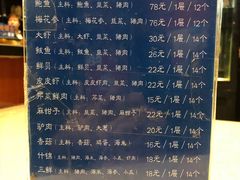 鲍鱼(主料:鲍鱼、韭菜、猪肉) 78元/1屉/12个
梅花参(主料:梅花参、韭菜、猪肉) 76元/1屉/12个
大虾(主料:大虾、韭菜、猪肉) 30元/1屉/14个
鲅鱼(主料:鲅鱼、韭菜、猪肉) 26元/1屉/14个
鲜贝(主料:鲜贝、韭菜、猪肉) 22元/1屉/14个
皮皮虾(主料:皮皮虾肉、韭菜、猪肉) 22元/1屉/14个
荠菜鲜肉(主料:荠菜、猪肉) 15元/1屉/14个
麻蚶子(主料:韭菜、猪肉、麻蚶子) 22元/1屉/14个
驴肉(主料:驴肉、大葱) 20元/1屉/14个
香菇(主料:香菇、鸡蛋、猪肉) 16元/1屉/14个
什锦(主料:猪肉、海米、海参、小瓜、虾肉) 18元/1屉/14个
三鲜(主料:猪肉、海米、海参、小瓜) 18元/1屉/14个